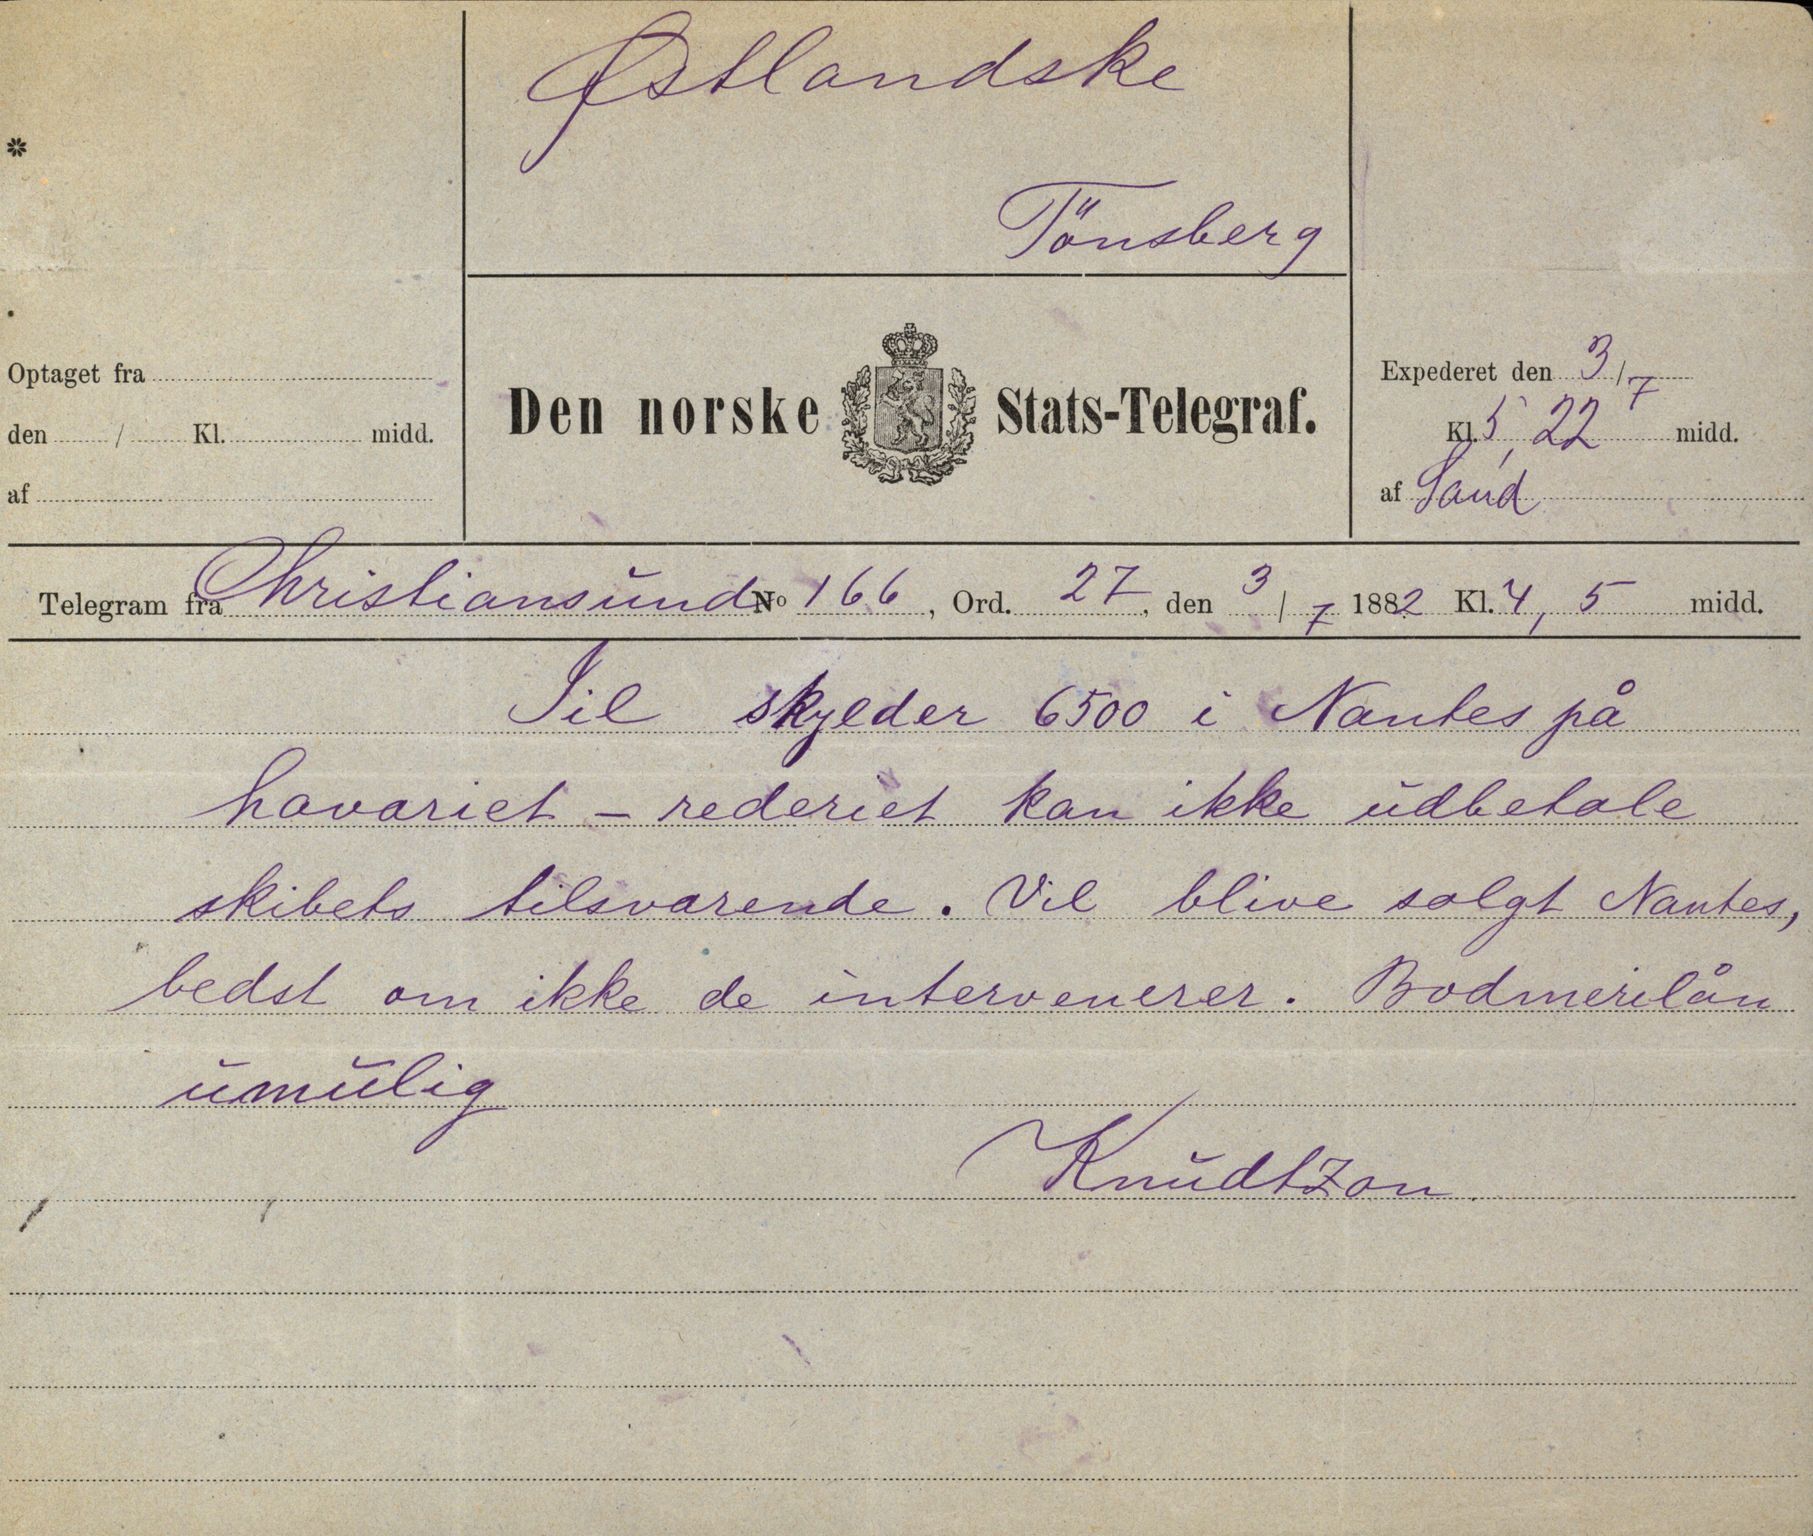 Østlandske
Tönsberg
*
Optaget fra
den / Kl. midd.
af
Den norske Stats-Telegraf.
Expederet den 3/7
Kl. 5,22 midd.
af
Telegram fra Christiansund No 166, Ord. 27, den 3/7 1882 Kl. 4,5 midd.
Iil skylder 6500 i Nantes på
havariet - rederiet kan ikke udbetale
skibets tilsvarende. Vil blive solgt Nantes,
bedst om ikke de intervenerer. Bodmerilån
umulig
Knudtzon